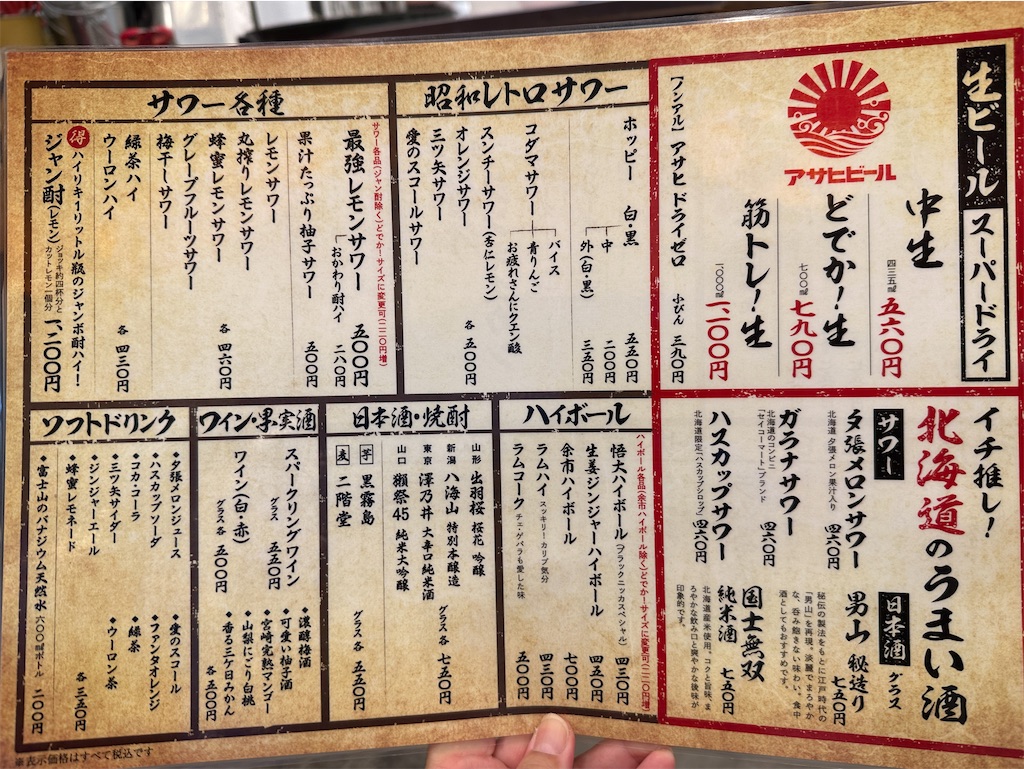 生ビール
スーパードライ
アサヒビール
中生
四三五㎖ 五六〇円
どでか！生
七〇〇㎖ 七九〇円
筋トレ！生
一〇〇〇㎖ 一、一〇〇円
［ノンアル］アサヒ ドライゼロ 小びん 三九〇円
昭和レトロサワー
ホッピー 白・黒 五五〇円
中 二〇〇円
外（白・黒） 三五〇円
コダマサワー
バイス
青りんご
お疲れさんにクエン酸
スンチーサワー（杏仁レモン）
オレンジサワー
三ツ矢サワー
愛のスコールサワー
各 五〇〇円
サワー各種
サワー各品（ジャン酎除く）どでか！サイズに変更可（二二〇円増）
最強レモンサワー 五〇〇円
おかわり酎ハイ 二八〇円
果汁たっぷり柚子サワー 五〇〇円
レモンサワー
丸搾りレモンサワー
蜂蜜レモンサワー
グレープフルーツサワー
梅干しサワー
各 四六〇円
緑茶ハイ
ウーロンハイ
各 四三〇円
得 ハイリキ１リットル瓶のジャンボ酎ハイ！
ジャン酎（レモン） ジョッキ約四杯分と
カットレモン一個分
一、二〇〇円
イチ推し！
北海道のうまい酒
サワー
夕張メロンサワー 四六〇円
北海道 夕張メロン果汁入り
ガラナサワー 四六〇円
北海道のコンビニ
「セイコーマート」ブランド
ハスカップサワー 四六〇円
北海道限定「ハスカップシロップ」
日本酒 グラス
男山 秘造り 七五〇円
秘伝の製法をもとに江戸時代の
「男山」を再現。淡麗でまろやか
な、呑み飽きない味わい。食中
酒としてもおすすめです。
国士無双
純米酒 七五〇円
北海道産米使用。コクと旨味、ま
ろやかな飲み口と爽やかな後味が
印象的です。
ハイボール
ハイボール各品（余市ハイボール除く）どでか！サイズに変更可（二二〇円増）
悟大ハイボール（ブラックニッカスペシャル） 四三〇円
生姜ジンジャーハイボール 四五〇円
余市ハイボール 七〇〇円
ラムハイ スッキリ！カリブ気分 四三〇円
ラムコーク チェ・ゲバラも愛した味 五〇〇円
日本酒・焼酎
山形 出羽桜 桜花 吟醸
新潟 八海山 特別本醸造
東京 澤乃井 大辛口純米酒
山口 獺祭45 純米大吟醸
グラス 各 七五〇円
芋 黒霧島
麦 二階堂
グラス 各 五〇〇円
ワイン・果実酒
スパークリングワイン
グラス 五五〇円
ワイン（白・赤）
グラス 各 五〇〇円
◆濃醇梅酒
◆可愛い柚子酒
◆宮崎完熟マンゴー
◆山梨にごり白桃
◆香る三ケ日みかん
各 五〇〇円
ソフトドリンク
◆夕張メロンジュース
◆ハスカップソーダ
◆コカ・コーラ
◆三ツ矢サイダー
◆ジンジャーエール
◆蜂蜜レモネード
◆愛のスコール
◆ファンタオレンジ
◆緑茶
◆ウーロン茶
各 三五〇円
◆富士山のバナジウム天然水 六〇〇㎖ボトル 二〇〇円
※表示価格はすべて税込です